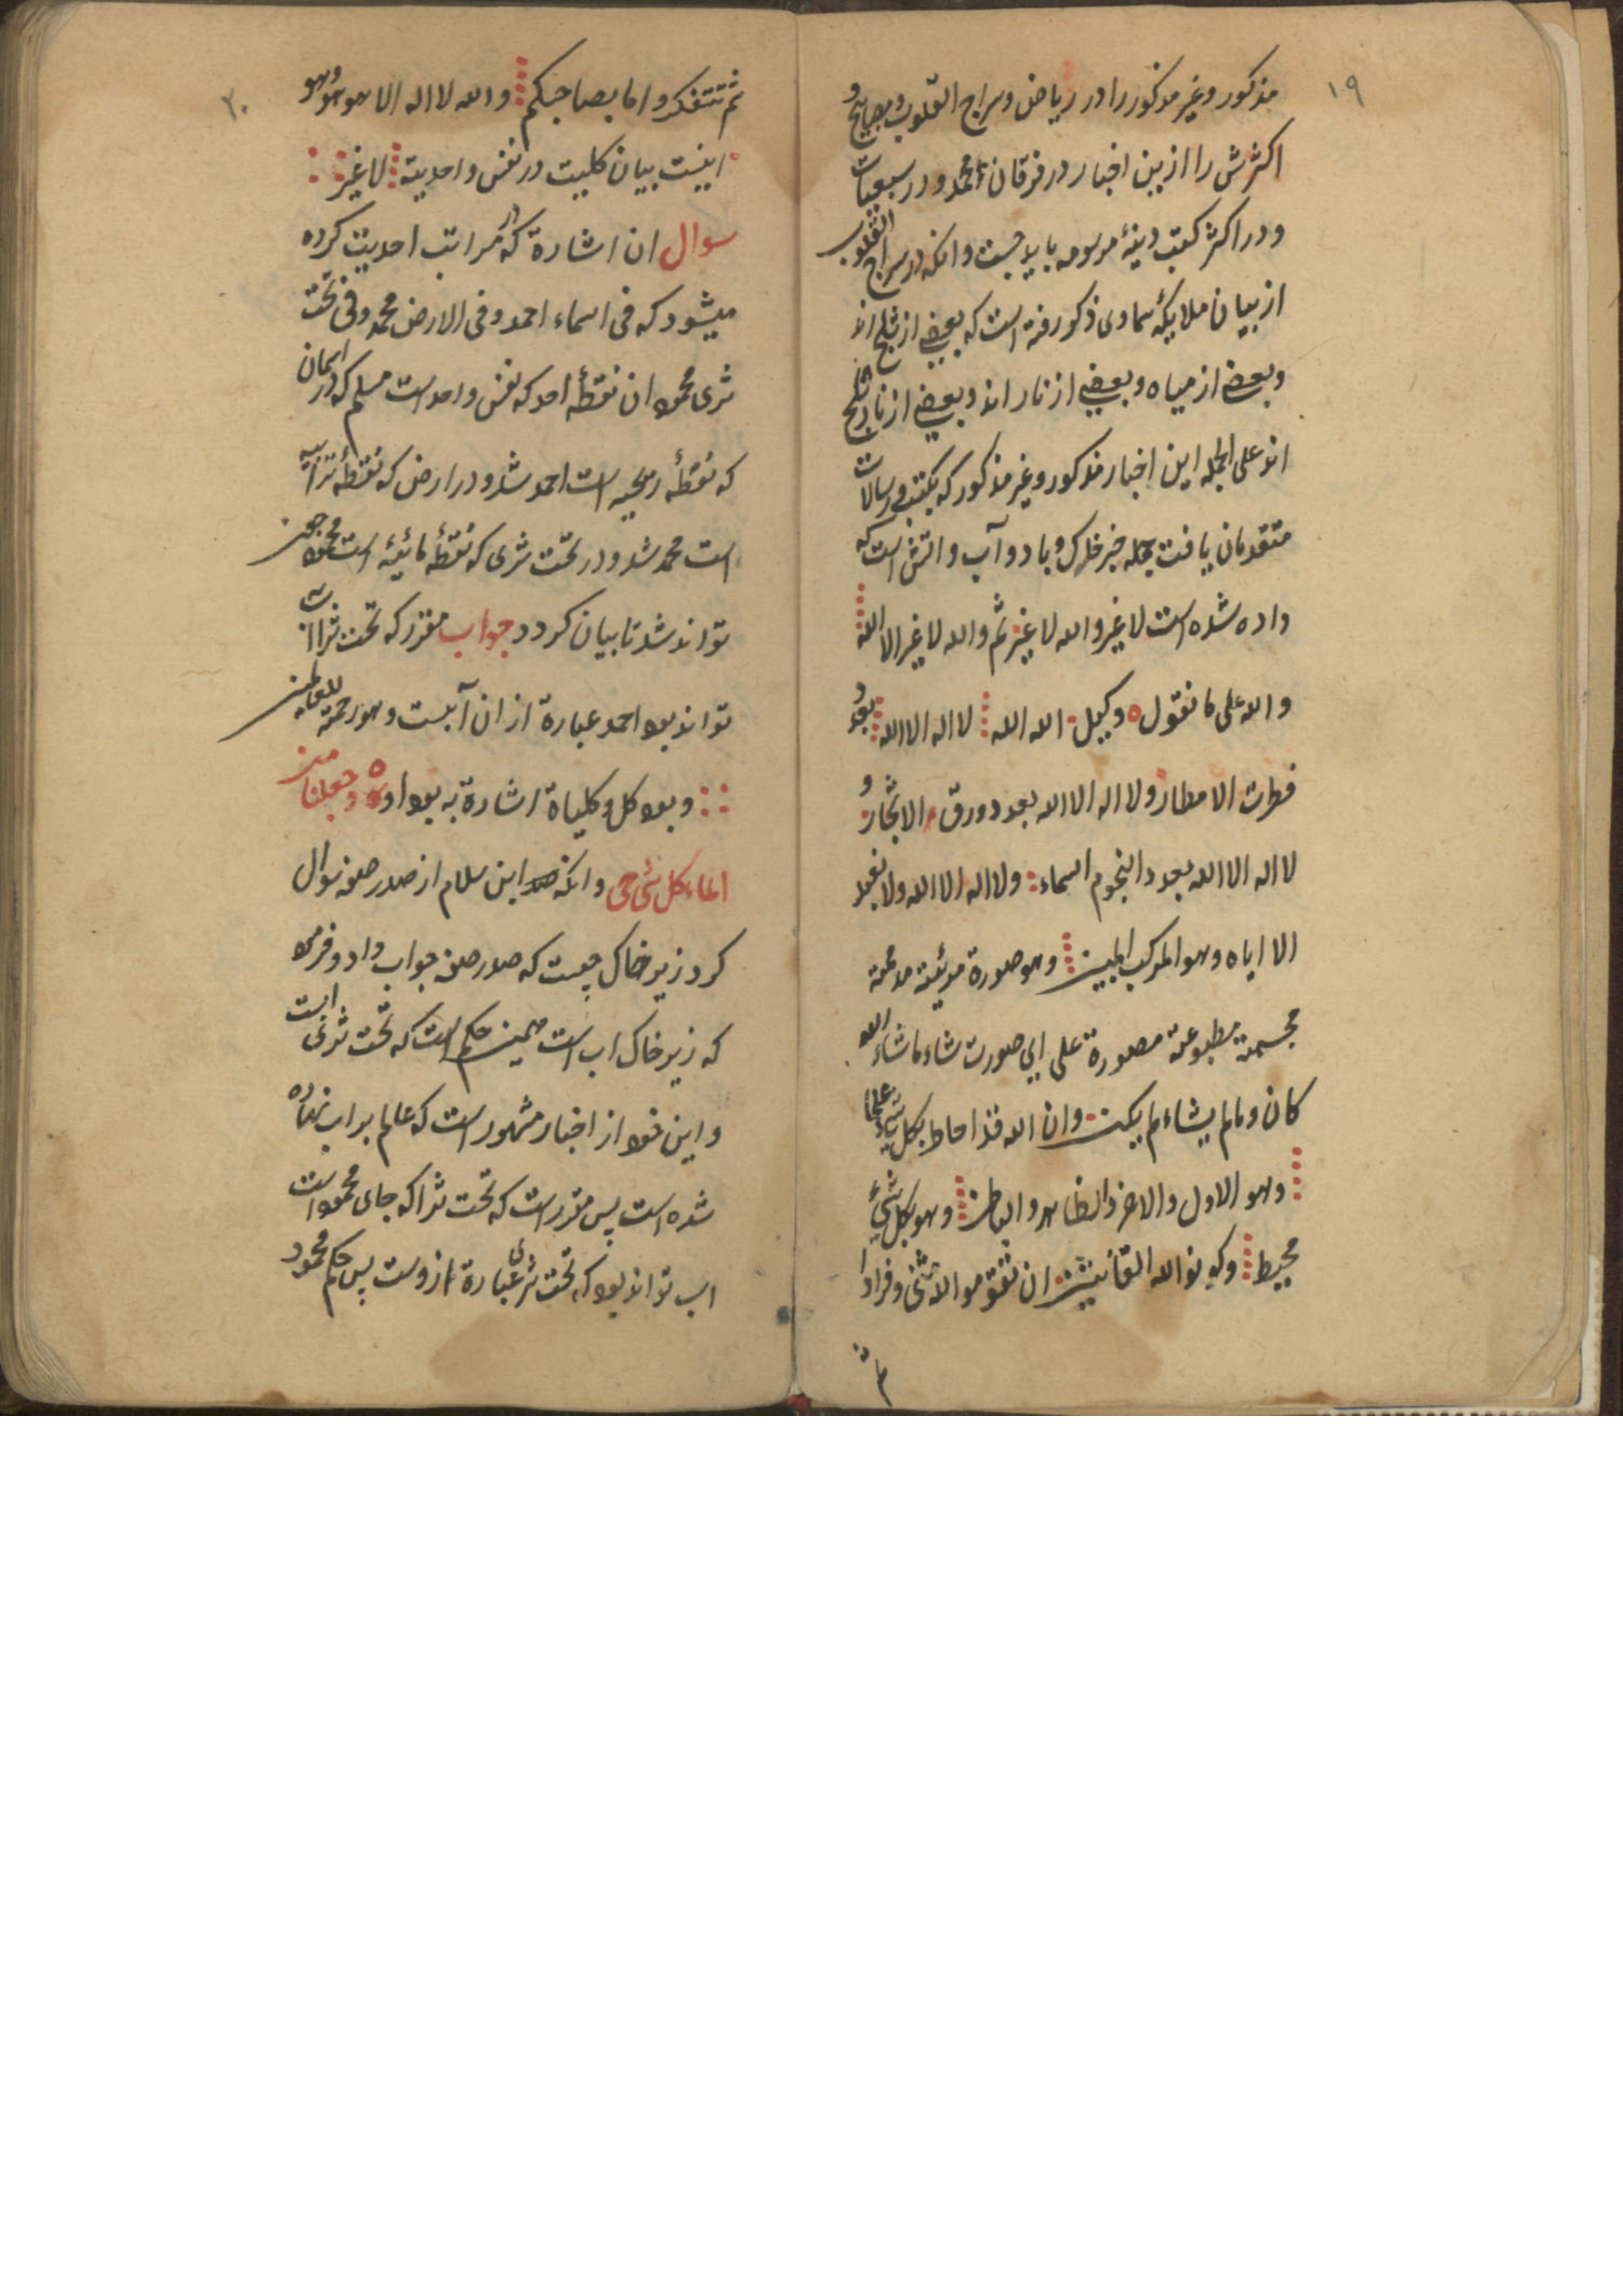 ۱۹
مذکور و غیر مذکور را در ریاض و سراج القلوب و مصابیح و
اکثرش را از بین اخبار در فرقان محمد و در سبعیات
و در اکثر کتب دینهٔ مرسومه باید جست و انکه در سراج القلوب
از بیان ملایکهٔ سماوی ذکور رفته است که بعضی از ثلج اند
و بعضی از میاه و بعضی از نار اند و بعضی از نار و ثلج
اند علی الجمله این اخبار مذکور و غیر مذکور که بکتب و رسالات
متقدمان یافت جمله خبر خاک و باد و آب و اتش است که
داده شده است لا غیر والله لا غیر ثم والله لا غیر الا الله
والله علی ما نقول وکیل الله الله لا اله الا الله بعدد
قطرت الامطار و لا اله الا الله بعدد ورق الاشجار و
لا اله الا الله بعدد النجوم السماء و لا اله الا الله ولا نعبد
الا ایاه و هو المرکب المبین و هو صورة مرئیة مدمحة
مجسمة مطبوعة مصورة علی ای صورت شاء ما شاء الله
کان و مالم یشاء لم یکن و ان الله قد احاط بکل شیء علما
و هو الاول و الاخر و الظاهر و الباطن و هو بکل شیء
محیط و کونوا لله القانتین ان تقوموا لله مثنی و فرادا
ثم
۲۰
ثم تتفکروا ما بصاحبکم والله لا اله الا هو هو و هو
اینست بیان کلیت در نفس واحدیته لا غیر
سوال ان اشارة که در مراتب احدیت کرده
میشود که فی اسماء احمد و فی الارض محمد و فی تحت
ثری محمود ان نقطهٔ احد که نفس واحد است مسلم که در اسمان
که نقطهٔ ریحیه است احمد شد و در ارض که نقطهٔ ترابیه
است محمد شد و در تحت ثری که نقطهٔ مائیهٔ است محمود چون
تواند شد تا بیان کردد جواب مقرر که تحت ثرا اب
تواند بود احمد عبارة از ان آبست و هو رحمة للعالمین
و بود کل و کلیاة اشارة به بود او و جعلنا من
الماء کل شیٔ حی و انکه ابن سلام از صدر صفه سوال
کرد زیر خاک چیست که صدر صفه جواب داد و فرمود
که زیر خاک اب است همین حکم است که تحت ثری است
و این خود از اخبار مشهور است که عالم بر اب نهاده
شده است پس مقرر است که تحت ثرا که جای محمود است
اب تواند بود که تحت ثری عبارة ازوست پس حکم محمود